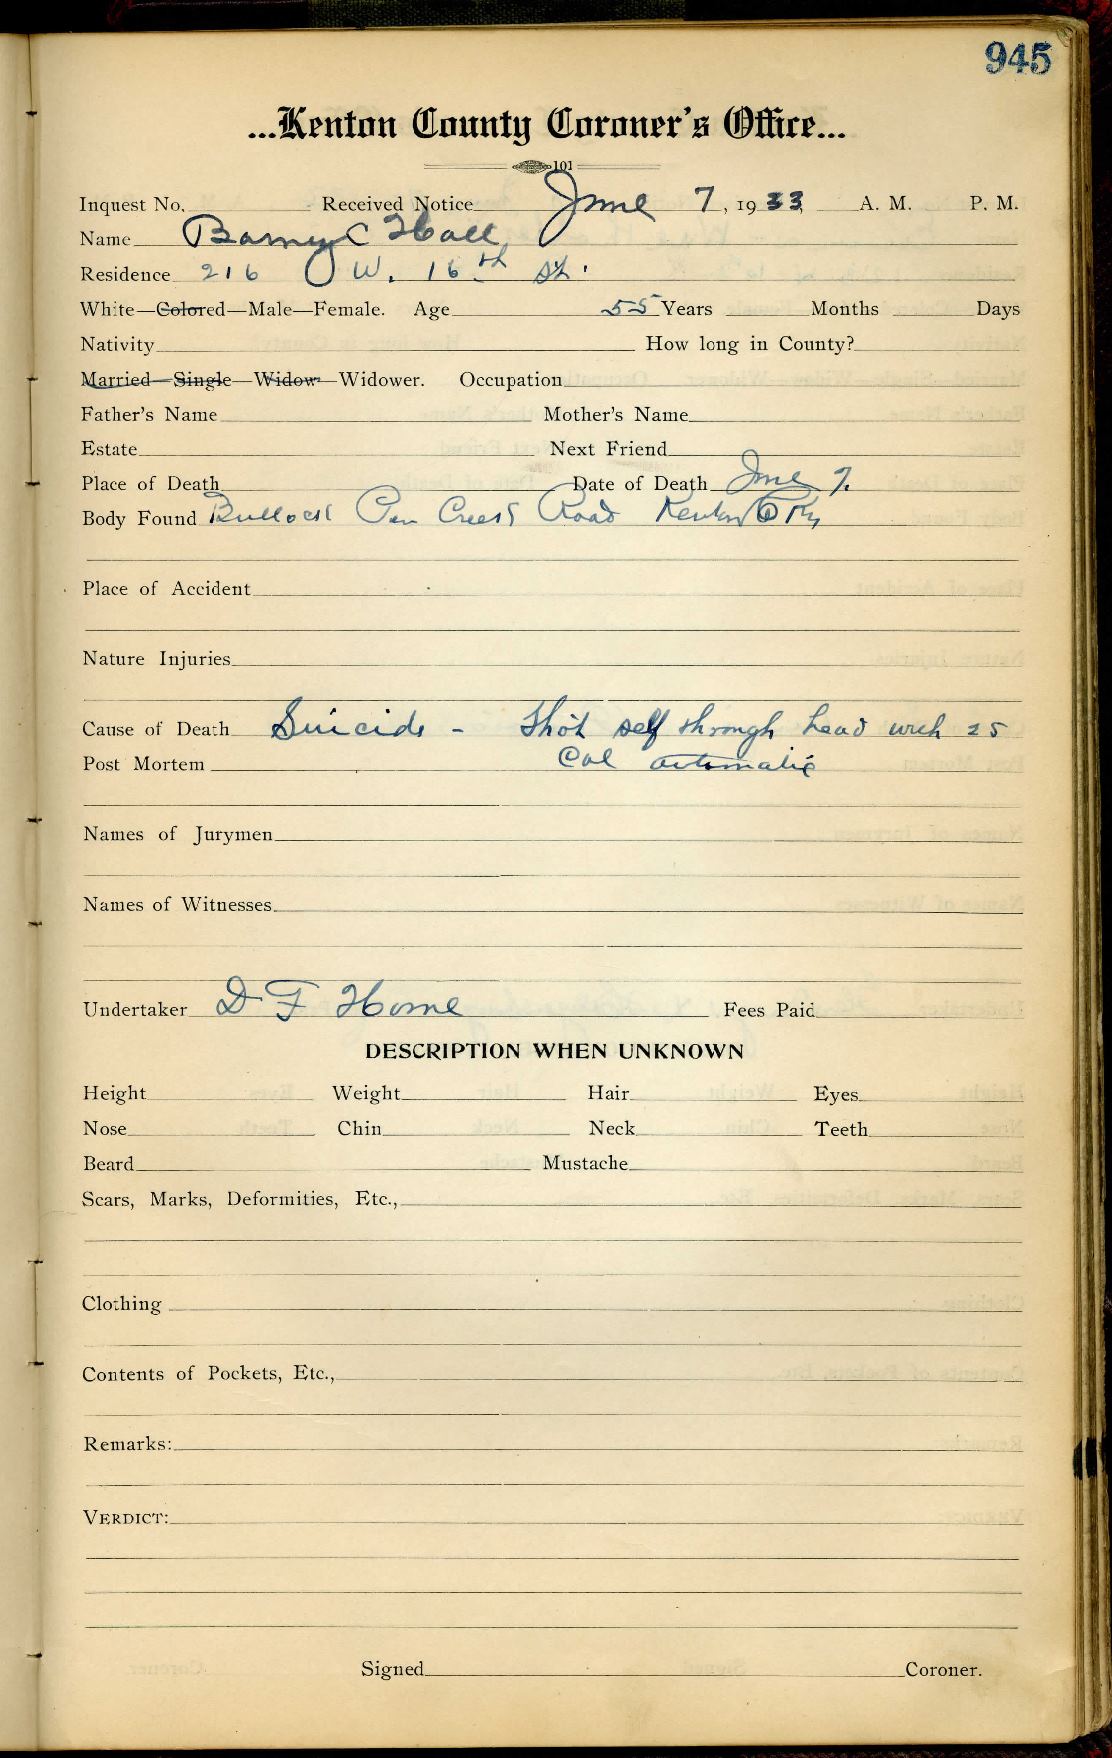 945
...Kenton County Coroner's Office...
101
Inquest No. Received Notice June 7, 1933 A. M. P. M.
Name Barney C Hall
Residence 216 W. 16th St.
White—Colored—Male—Female. Age 55 Years Months Days
Nativity How long in County?
Married—Single—Widow—Widower. Occupation
Father's Name Mother's Name
Estate Next Friend
Place of Death Date of Death June 7.
Body Found Bullock Pen Creek Road Kenton Co Ky
Place of Accident
Nature Injuries
Cause of Death Suicide - Shot self through head with 25
Post Mortem Cal automatic
Names of Jurymen
Names of Witnesses
Undertaker D F Home Fees Paid
DESCRIPTION WHEN UNKNOWN
Height Weight Hair Eyes
Nose Chin Neck Teeth
Beard Mustache
Scars, Marks, Deformities, Etc.,
Clothing
Contents of Pockets, Etc.,
Remarks:
VERDICT:
Signed Coroner.